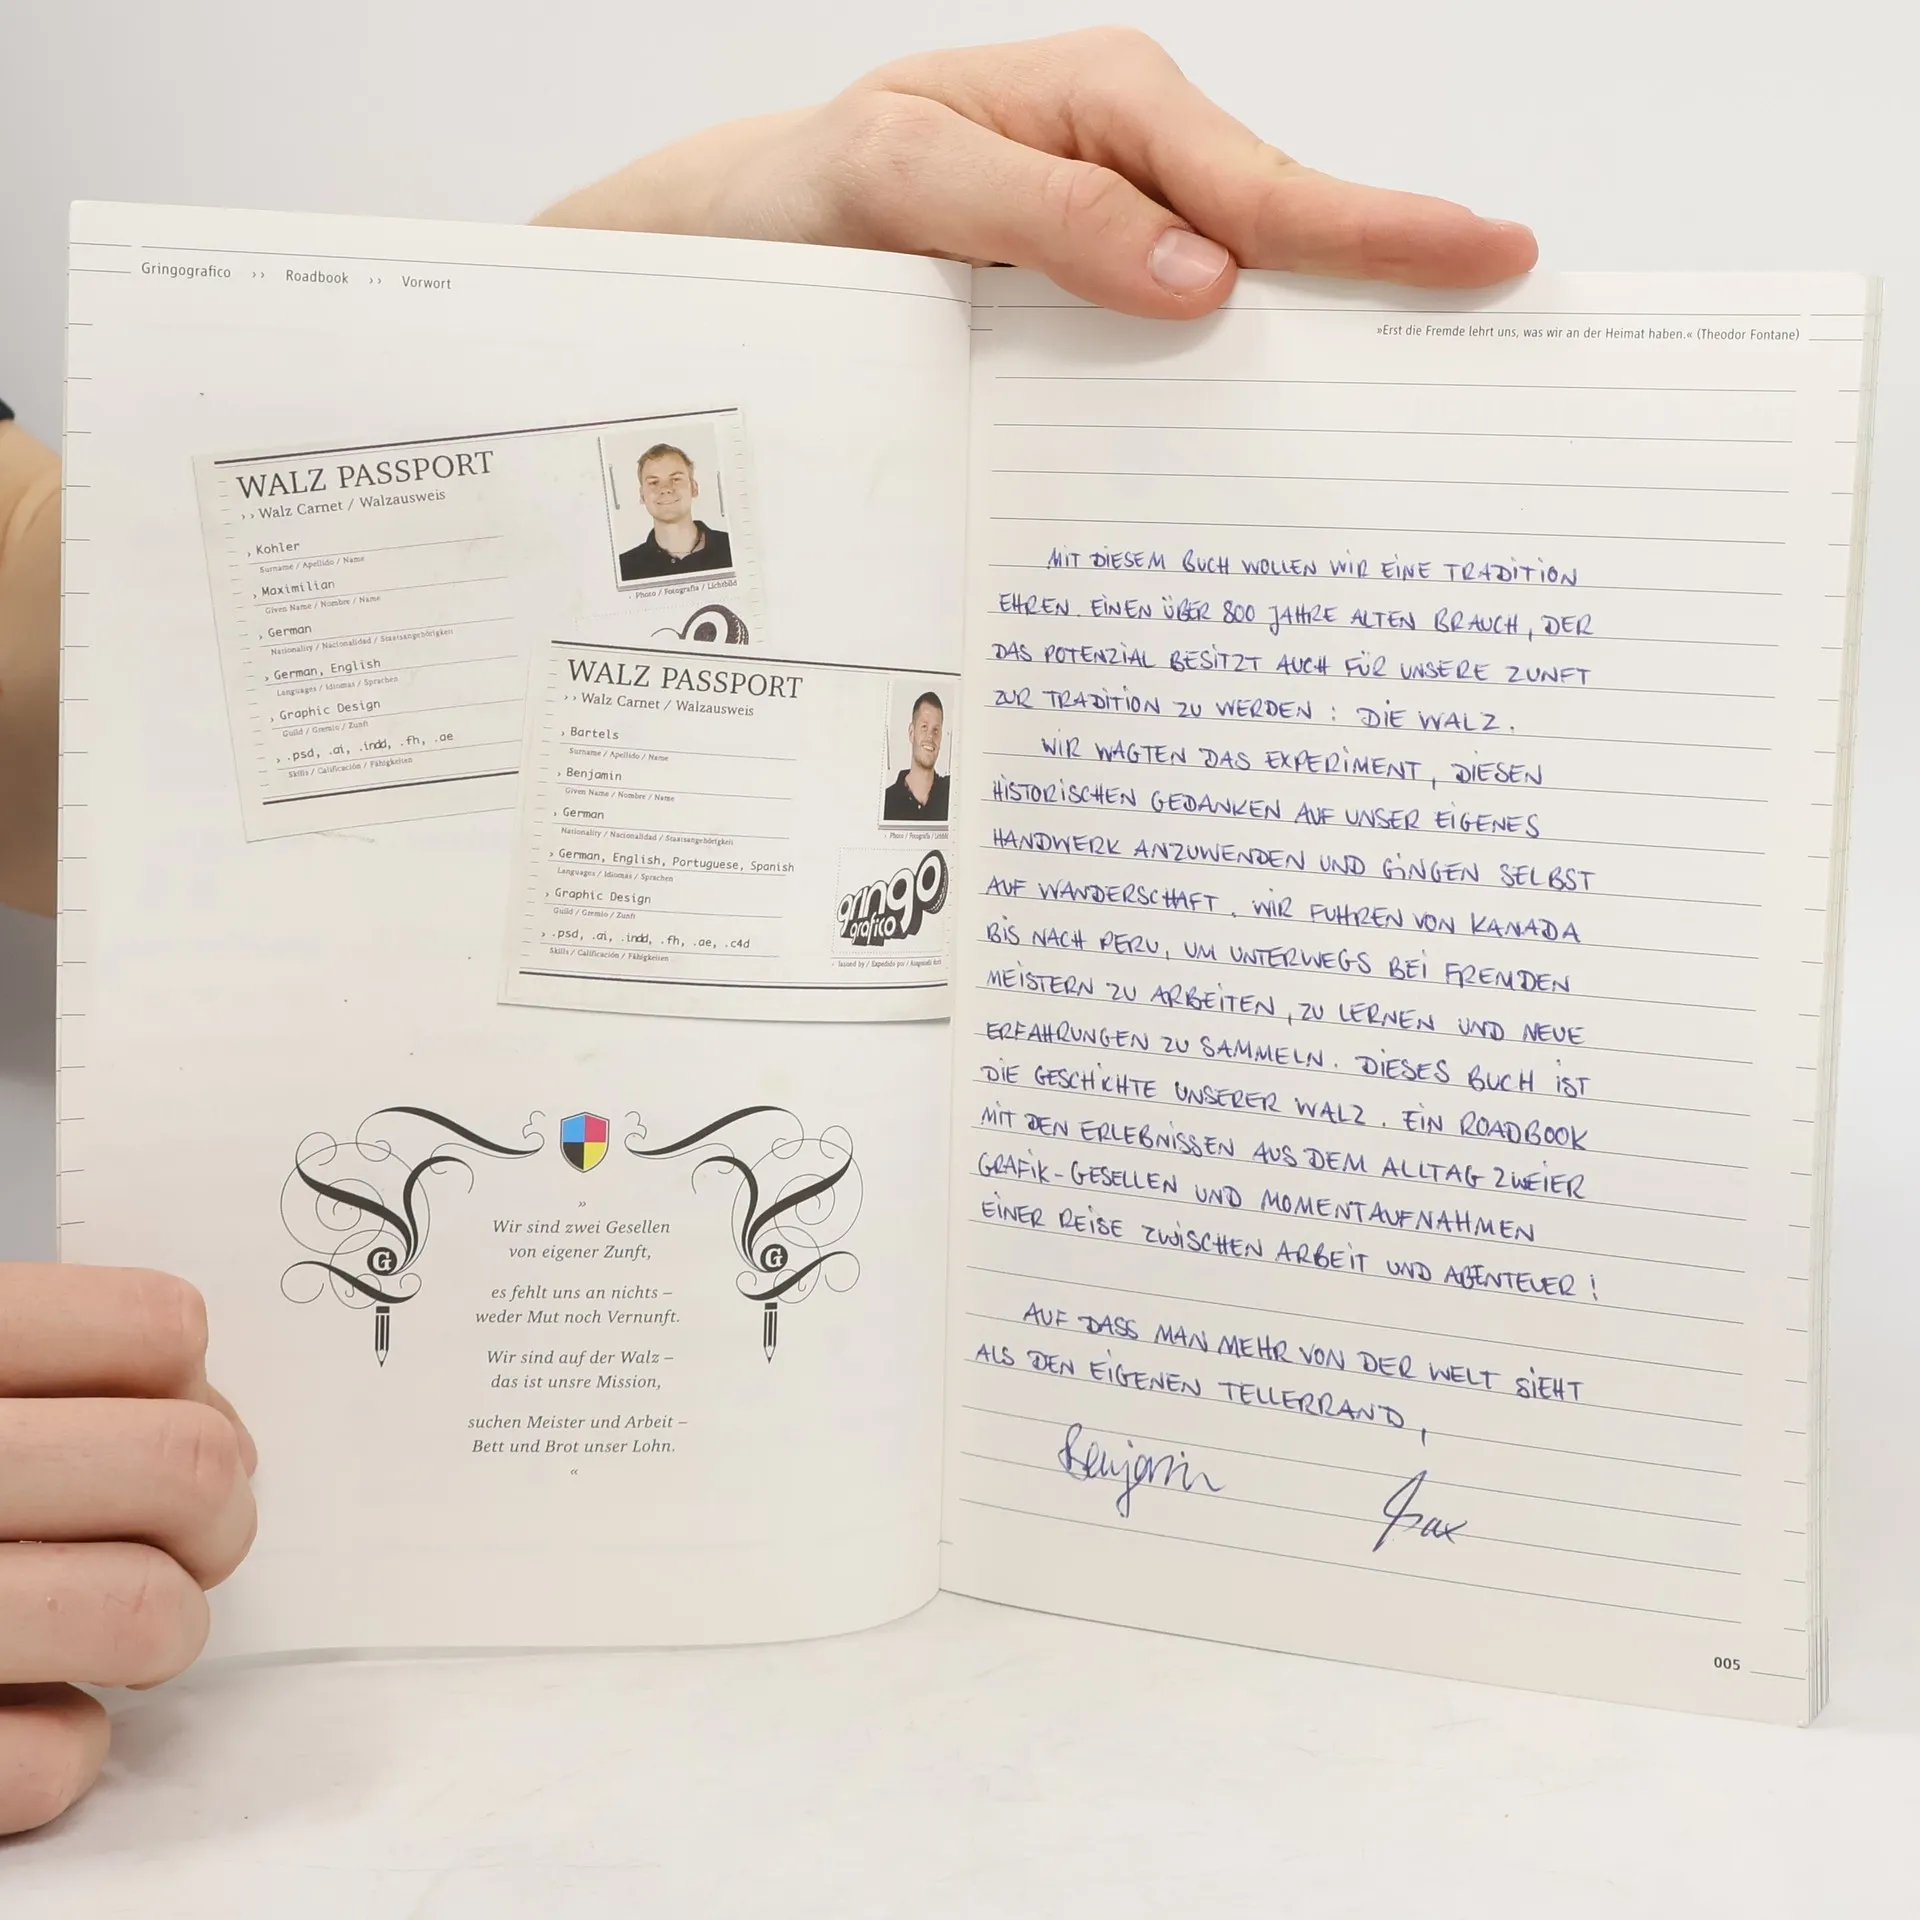 Gringografico ›› Roadbook ›› Vorwort
WALZ PASSPORT
›› Walz Carnet / Walzausweis
› Kohler
Surname / Apellido / Name
› Maximilian
Given Name / Nombre / Name
› German
Nationality / Nacionalidad / Staatsangehörigkeit
› German, English
Languages / Idiomas / Sprachen
› Graphic Design
Guild / Gremio / Zunft
› .psd, .ai, .indd, .fh, .ae
Skills / Calificación / Fähigkeiten
› Photo / Fotografía / Lichtbild
WALZ PASSPORT
›› Walz Carnet / Walzausweis
› Bartels
Surname / Apellido / Name
› Benjamin
Given Name / Nombre / Name
› German
Nationality / Nacionalidad / Staatsangehörigkeit
› German, English, Portuguese, Spanish
Languages / Idiomas / Sprachen
› Graphic Design
Guild / Gremio / Zunft
› .psd, .ai, .indd, .fh, .ae, .c4d
Skills / Calificación / Fähigkeiten
› Photo / Fotografía /
gringo
grafico
› Issued by / Expedido por / Ausgestellt
G
G
»
Wir sind zwei Gesellen
von eigener Zunft,
es fehlt uns an nichts –
weder Mut noch Vernunft.
Wir sind auf der Walz –
das ist unsre Mission,
suchen Meister und Arbeit –
Bett und Brot unser Lohn.
«
»Erst die Fremde lehrt uns, was wir an der Heimat haben.« (Theodor Fontane)
MIT DIESEM BUCH WOLLEN WIR EINE TRADITION
EHREN. EINEN ÜBER 800 JAHRE ALTEN BRAUCH, DER
DAS POTENZIAL BESITZT AUCH FÜR UNSERE ZUNFT
ZUR TRADITION ZU WERDEN: DIE WALZ.
WIR WAGTEN DAS EXPERIMENT, DIESEN
HISTORISCHEN GEDANKEN AUF UNSER EIGENES
HANDWERK ANZUWENDEN UND GINGEN SELBST
AUF WANDERSCHAFT. WIR FUHREN VON KANADA
BIS NACH PERU, UM UNTERWEGS BEI FREMDEN
MEISTERN ZU ARBEITEN, ZU LERNEN UND NEUE
ERFAHRUNGEN ZU SAMMELN. DIESES BUCH IST
DIE GESCHICHTE UNSERER WALZ. EIN ROADBOOK
MIT DEN ERLEBNISSEN AUS DEM ALLTAG ZWEIER
GRAFIK-GESELLEN UND MOMENTAUFNAHMEN
EINER REISE ZWISCHEN ARBEIT UND ABENTEUER!
AUF DASS MAN MEHR VON DER WELT SIEHT
ALS DEN EIGENEN TELLERRAND,
Benjamin Max
005